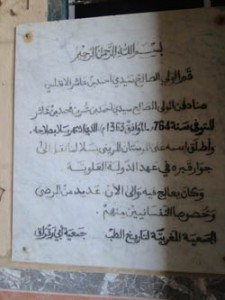 بسم الله الرحمن الرحيم
قبر الولي الصالح سيدي احمد بن عاشر الاندلسي
هنا دفن الولي الصالح سيدي احمد بن محمد بن عاشر
المتوفى سنة 764 هـ الموافق 1363م الذي اشتهر بسلا بصلاحه
وأطلق اسمه على المارستان المريني بسلا لما نقل الى
جوار قبره في عهد الدولة العلوية
وكان يعالج فيه والى الآن عديد من المرضى
وخصوصا النفسانيين منهم
الجمعية المغربية لتاريخ الطب جمعية أبي رقراق